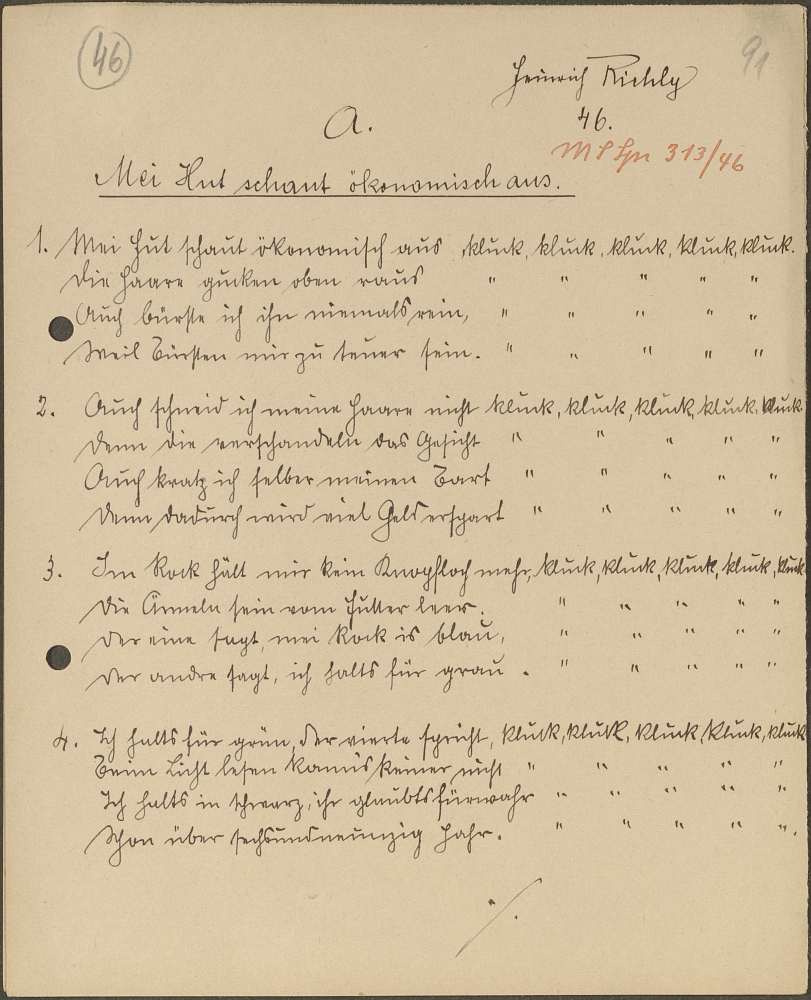 46
91
Heinrich Richly
46.
A.
313/46
Mei Hut schaut ökonomisch aus.
1. Mei Hut schaut ökonomisch aus, kluck, kluck, kluck, kluck, kluck.
Die Haare gucken oben raus " " " " "
Auch bürste ich ihn niemals rein, " " " " "
Weil Bürsten mir zu teuer sein. " " " " "
2. Auch schneid ich meine Haare nicht kluck, kluck, kluck, kluck, kluck.
Denn die verschandeln das Gesicht " " " " "
Auch kratz ich selber meinen Bart " " " " "
Denn dadurch wird viel Geld erspart " " " " "
3. Im Rock hält mir kein Knopfloch mehr, kluck, kluck, kluck, kluck, kluck
Die Ärmeln sein vom Futter leer. " " " " "
Der eine sagt, mei Rock is blau, " " " " "
Der andre sagt, ich halts für grau. " " " " "
4. Ich halts für grün, der vierte spricht, kluck, kluck, kluck, kluck, kluck
Beim Licht lesen kanns keiner nicht " " " " "
Ich halts in schwarz, ihr glaubts fürwahr " " " " "
Schon über sechsundneunzig Jahr. " " " " ".
./.